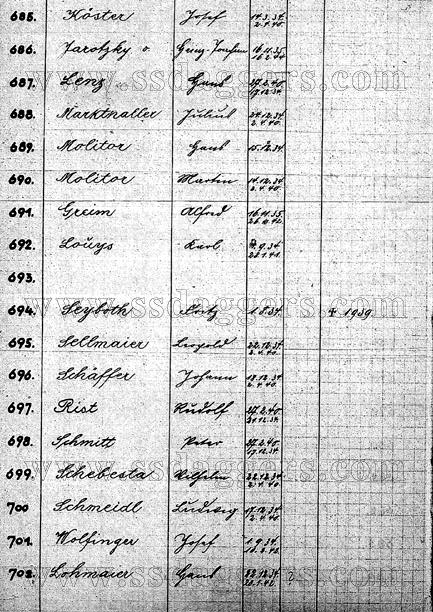 685. Köster Josef 14.3.34. 2.4.40.
686. Jarotzky v. Heinz-Joachim 16.11.35.
687. Lenz Hans 27.2.40. 17.12.34.
688. Marktnaller Julius 24.12.34. 2.4.40.
689. Molitor Hans 15.12.34.
690. Molitor Martin 14.12.34. 2.4.40.
691. Greim Alfred 16.11.35.
692. Louys Karl 9.34. 22.1.41.
693.
694. Seyboth Fritz 1.8.34. ‡ 1939.
695. Sellmaier Leopold 22.12.34. 2.4.40.
696. Schäffer Johann 18.12.34. 2.4.40.
697. Rist Rudolf 27.2.40. 21.12.34.
698. Schmitt Peter 27.2.40. 17.12.34.
699. Schebesta Wilhelm 22.12.34. 2.4.40.
700 Schmeidl Ludwig 17.12.34. 2.4.40.
701. Wolfinger Josef 1.9.34.
702. Lohmaier Hans 22.12.34. 22.1.42. 2
www.ssdaggers.com
www.ssdaggers.com
www.ssdaggers.com